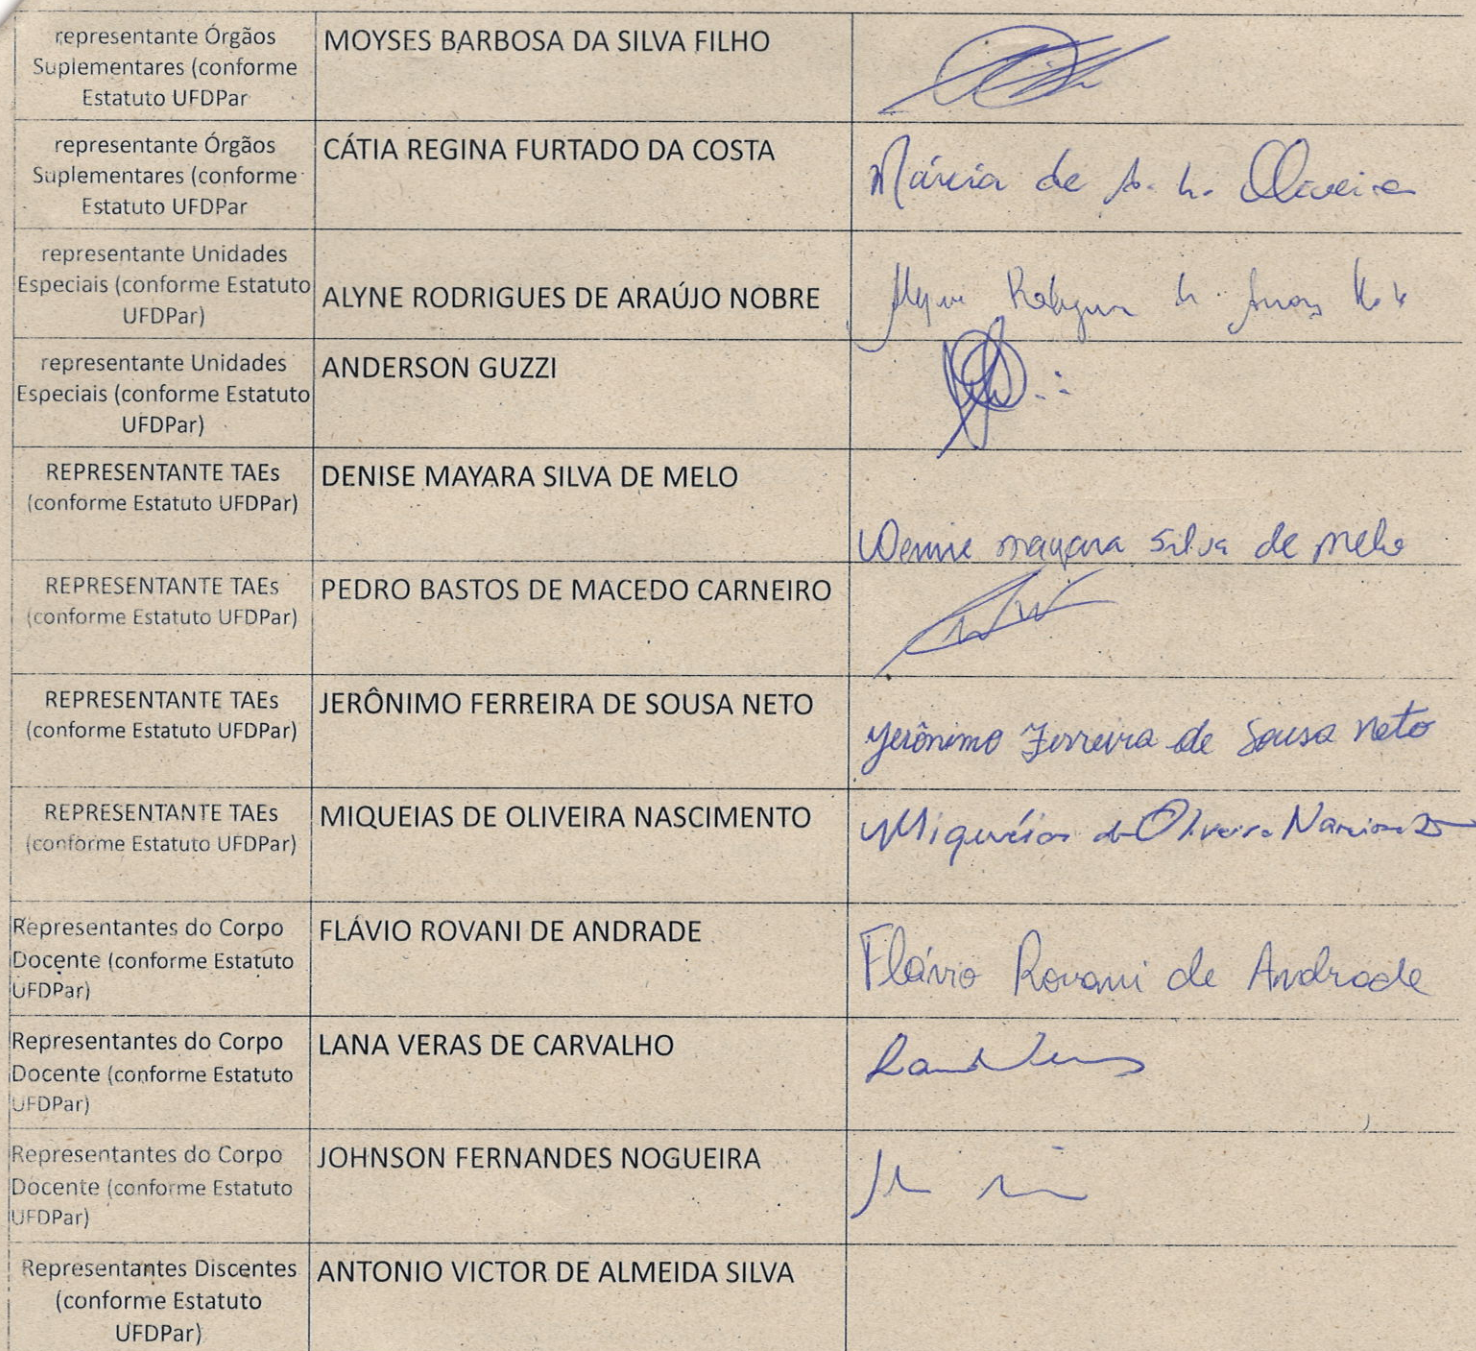 representante Órgãos
Suplementares (conforme
Estatuto UFDPar
MOYSES BARBOSA DA SILVA FILHO
representante Órgãos
Suplementares (conforme
Estatuto UFDPar
CÁTIA REGINA FURTADO DA COSTA
Márcia de Oliveira
representante Unidades
Especiais (conforme Estatuto
UFDPar)
ALYNE RODRIGUES DE ARAÚJO NOBRE
representante Unidades
Especiais (conforme Estatuto
UFDPar)
ANDERSON GUZZI
REPRESENTANTE TAEs
(conforme Estatuto UFDPar)
DENISE MAYARA SILVA DE MELO
Denise mayara Silva de melo
REPRESENTANTE TAEs
(conforme Estatuto UFDPar)
PEDRO BASTOS DE MACEDO CARNEIRO
REPRESENTANTE TAEs
(conforme Estatuto UFDPar)
JERÔNIMO FERREIRA DE SOUSA NETO
Jerônimo Ferreira de Sousa Neto
REPRESENTANTE TAEs
(conforme Estatuto UFDPar)
MIQUEIAS DE OLIVEIRA NASCIMENTO
Miquéias de Oliveira Nascimento
Representantes do Corpo
Docente (conforme Estatuto
UFDPar)
FLÁVIO ROVANI DE ANDRADE
Flávio Rovani de Andrade
Representantes do Corpo
Docente (conforme Estatuto
UFDPar)
LANA VERAS DE CARVALHO
Representantes do Corpo
Docente (conforme Estatuto
UFDPar)
JOHNSON FERNANDES NOGUEIRA
Representantes Discentes
(conforme Estatuto
UFDPar)
ANTONIO VICTOR DE ALMEIDA SILVA